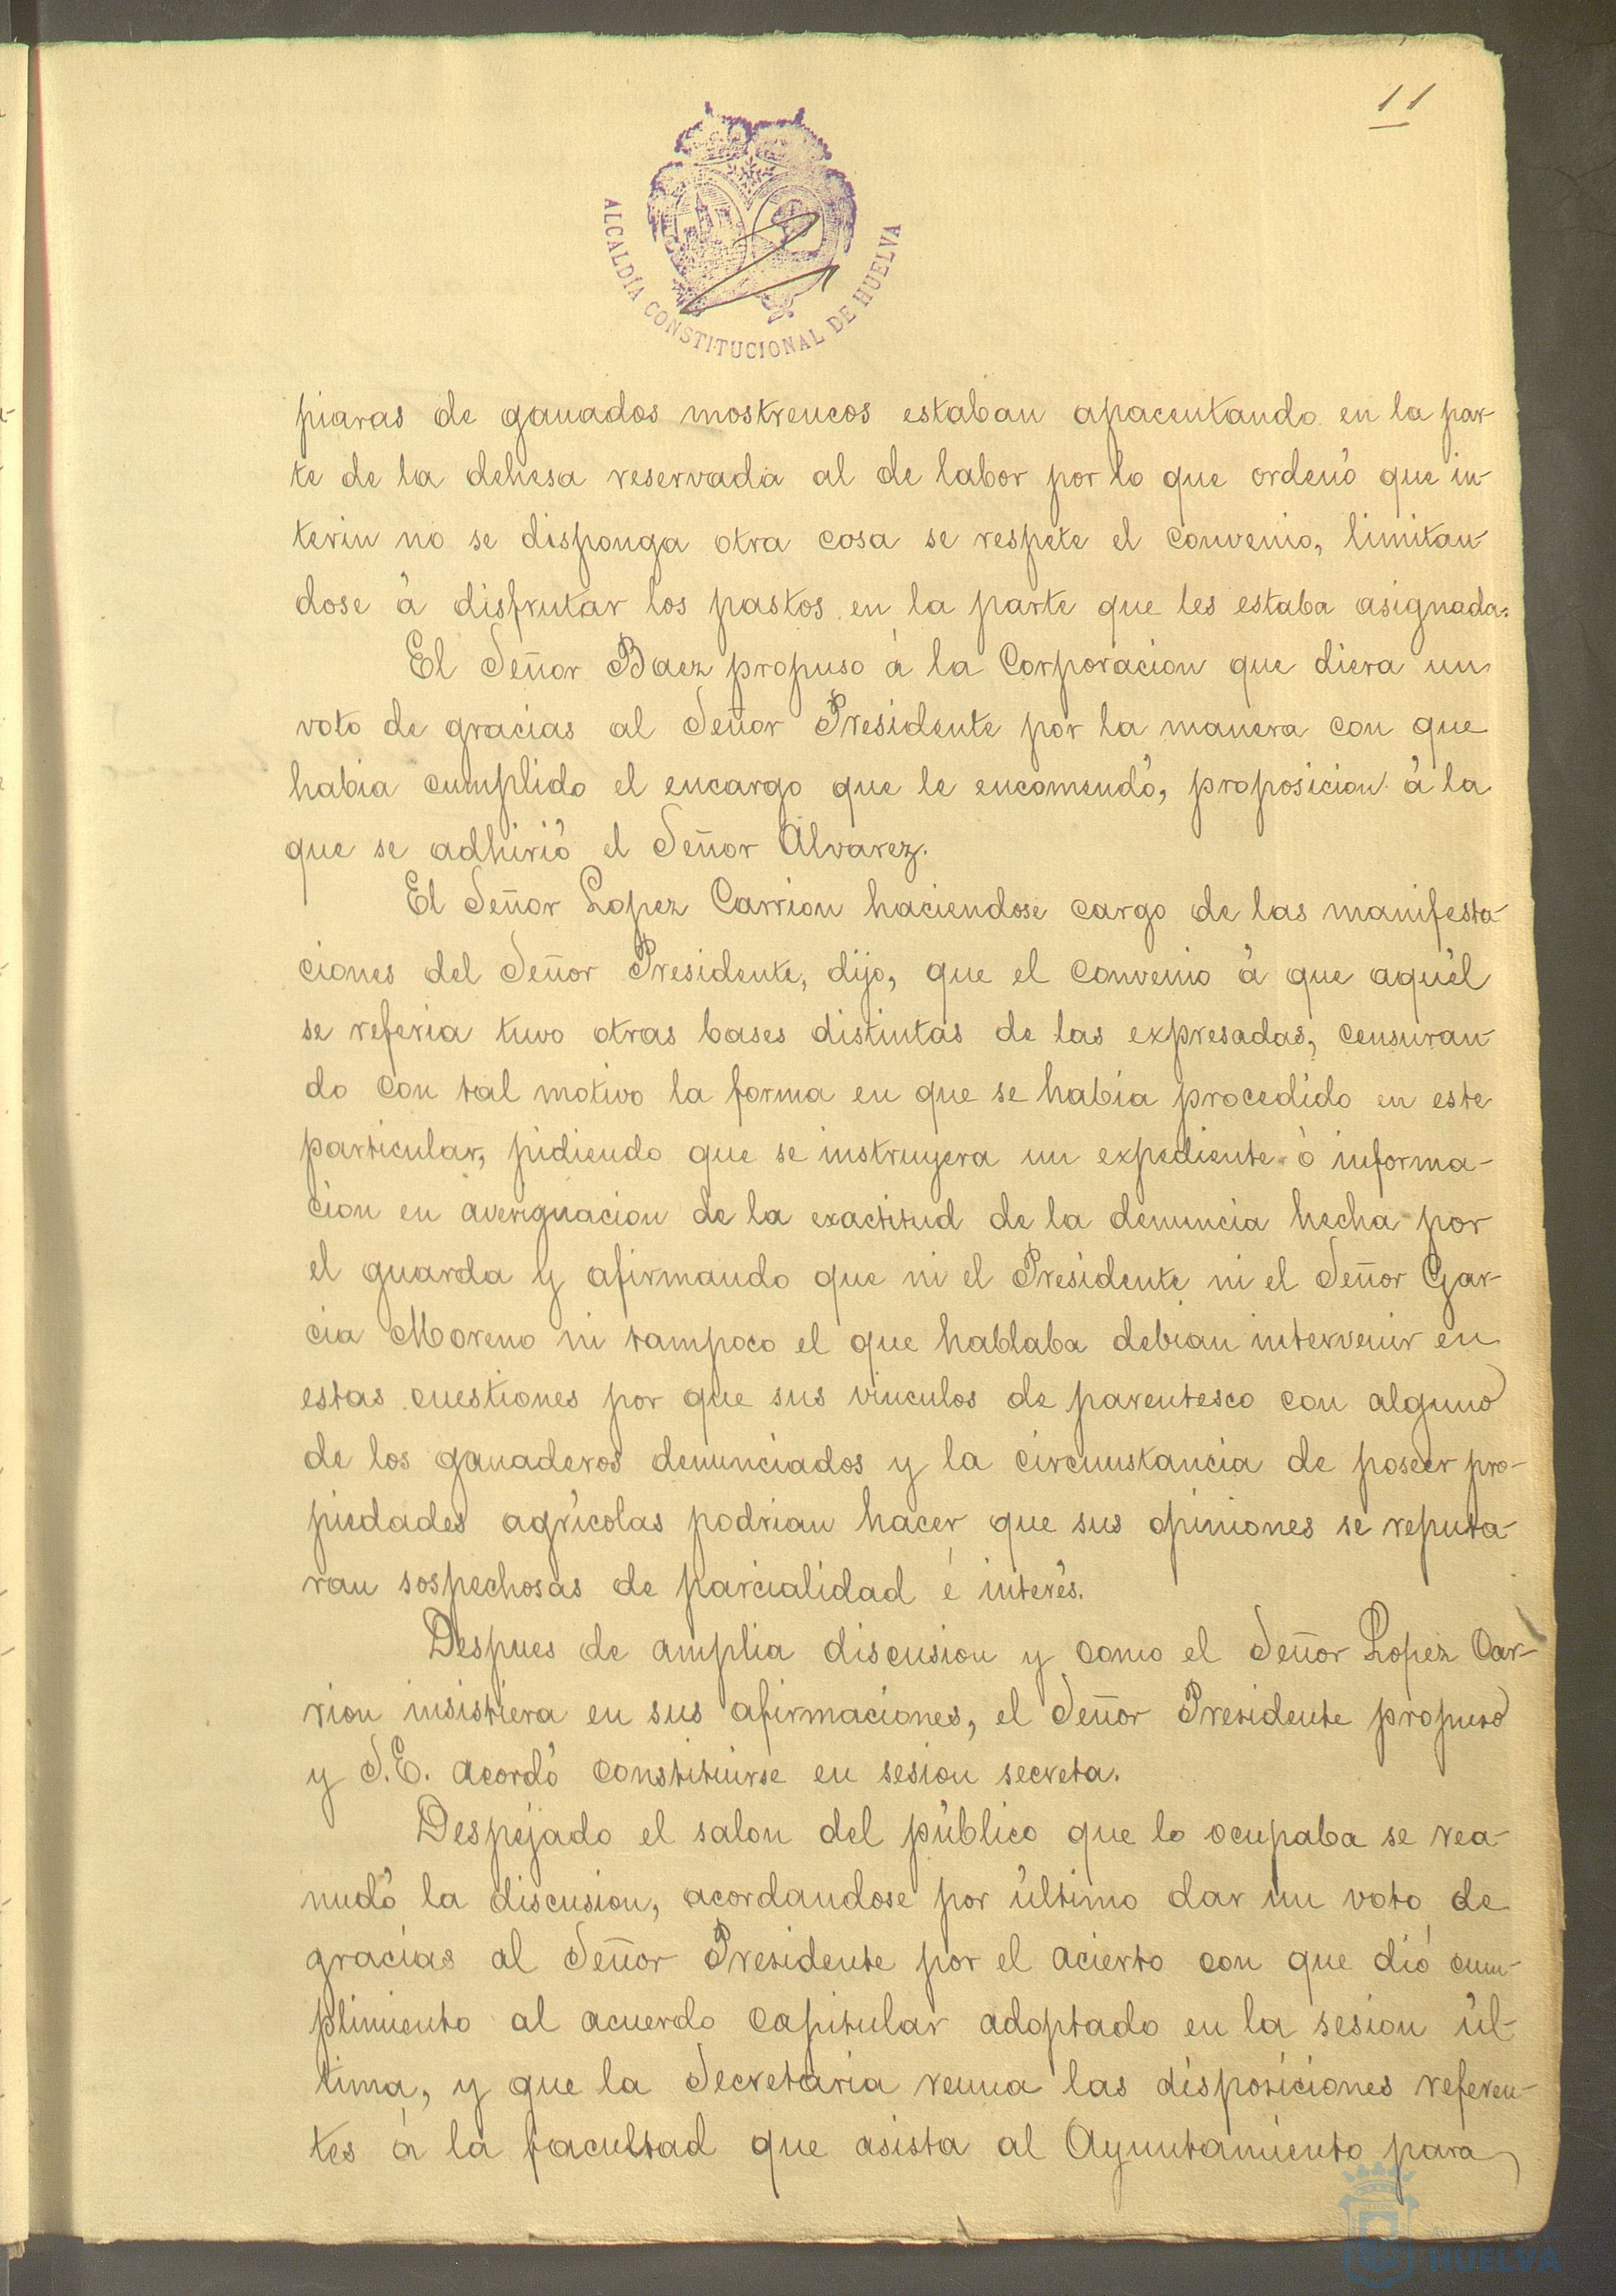 11
ALCALDÍA CONSTITUCIONAL DE HUELVA
piaras de ganados mostrencos estaban apacentando en la par-
te de la dehesa reservada al de labor por lo que ordenó que in-
terin no se disponga otra cosa se respete el convenio, limitan-
dose á disfrutar los pastos en la parte que les estaba asignada.
El Señor Baez propuso á la Corporacion que diera un
voto de gracias al Señor Presidente por la manera con que
habia cumplido el encargo que le encomendó, proposicion á la
que se adhirió el Señor Alvarez.
El Señor Lopez Carrion haciendose cargo de las manifesta-
ciones del Señor Presidente, dijo, que el convenio á que aquél
se referia tuvo otras bases distintas de las expresadas, censuran-
do con tal motivo la forma en que se había procedido en este
particular, pidiendo que se instruyera un expediente ó informa-
cion en averiguacion de la exactitud de la denuncia hecha por
el guarda y afirmando que ni el Presidente ni el Señor Gar-
cia Moreno ni tampoco el que hablaba debian intervenir en
estas cuestiones por que sus vinculos de parentesco con alguno
de los ganaderos denunciados y la circunstancia de poseer pro-
piedades agrícolas podrian hacer que sus opiniones se reputa-
ran sospechosas de parcialidad é interés.
Despues de amplia discusion y como el Señor Lopez Car-
rion insistiera en sus afirmaciones, el Señor Presidente propuso
y S.E. acordó constituirse en sesion secreta.
Despejado el salon del público que lo ocupaba se rea-
nudó la discusion, acordandose por último dar un voto de
gracias al Señor Presidente por el acierto con que dió cum-
plimiento al acuerdo capitular adoptado en la sesion úl-
tima, y que la Secretaria reuna las disposiciones referen-
tes á la facultad que asista al Ayuntamiento para
HUELVA